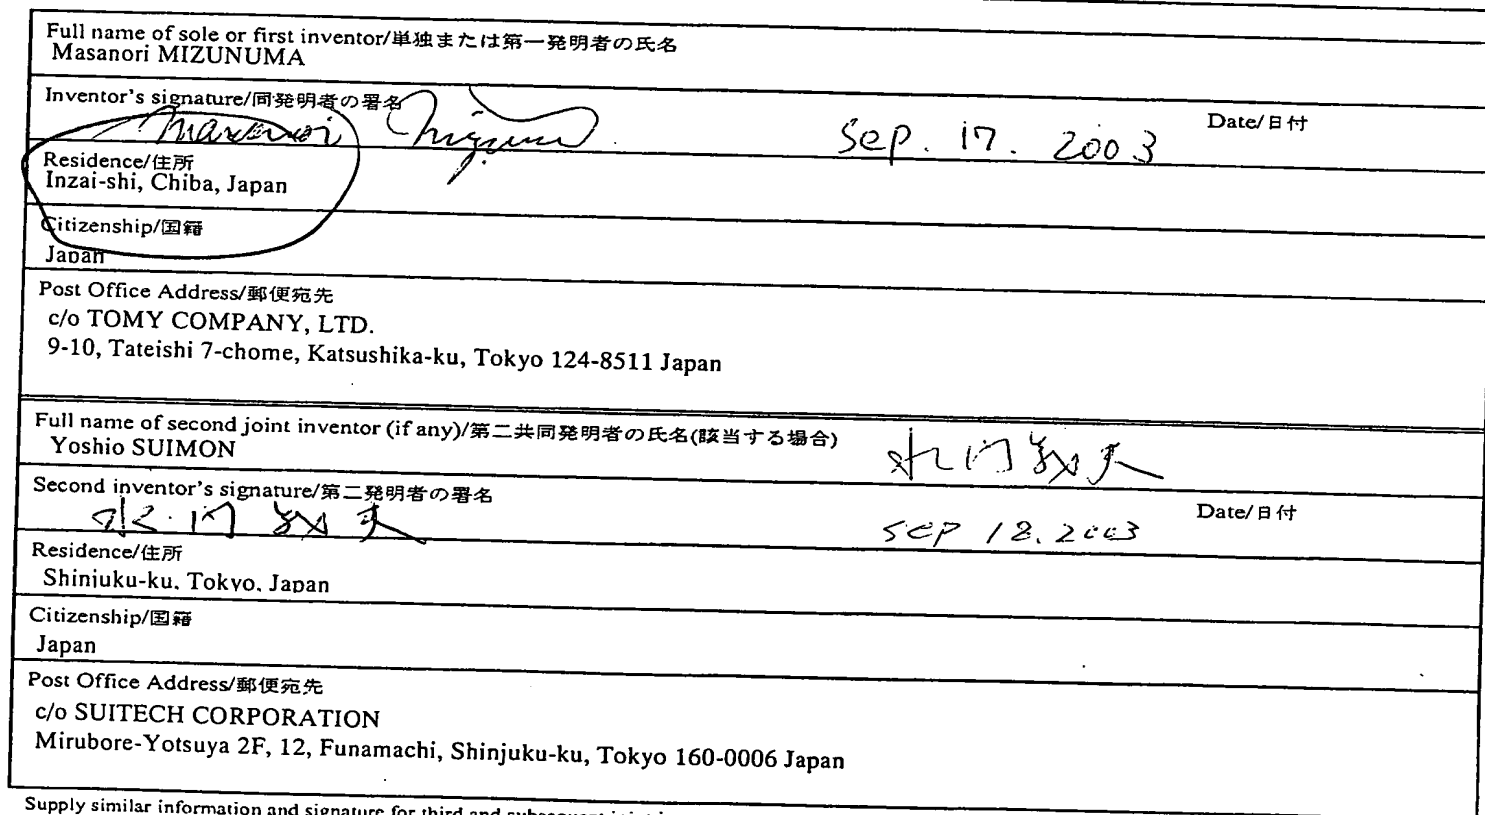 Full name of sole or first inventor/単独または第一発明者の氏名
Masanori MIZUNUMA
Inventor's signature/同発明者の署名
Masanori Mizunuma
Date/日付
Sep. 17. 2003
Residence/住所
Inzai-shi, Chiba, Japan
Citizenship/国籍
Japan
Post Office Address/郵便宛先
c/o TOMY COMPANY, LTD.
9-10, Tateishi 7-chome, Katsushika-ku, Tokyo 124-8511 Japan
Full name of second joint inventor (if any)/第二共同発明者の氏名(該当する場合)
Yoshio SUIMON
Second inventor's signature/第二発明者の署名
Date/日付
Sep 18. 2003
Residence/住所
Shinjuku-ku, Tokyo, Japan
Citizenship/国籍
Japan
Post Office Address/郵便宛先
c/o SUITECH CORPORATION
Mirubore-Yotsuya 2F, 12, Funamachi, Shinjuku-ku, Tokyo 160-0006 Japan
Supply similar information and signature for third and subsequent